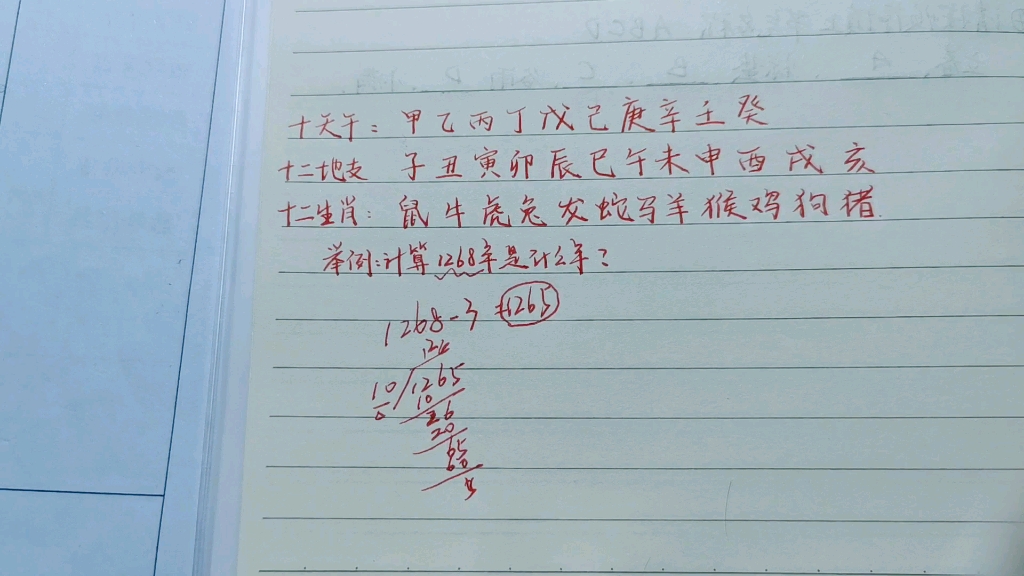 十天干：甲乙丙丁戊己庚辛壬癸
十二地支 子丑寅卯辰巳午未申酉戌亥
十二生肖：鼠牛虎兔龙蛇马羊猴鸡狗猪.
举例:计算1268年是什么年？
1268-3=1265
126
10 1265
10
26
20
65
60
5